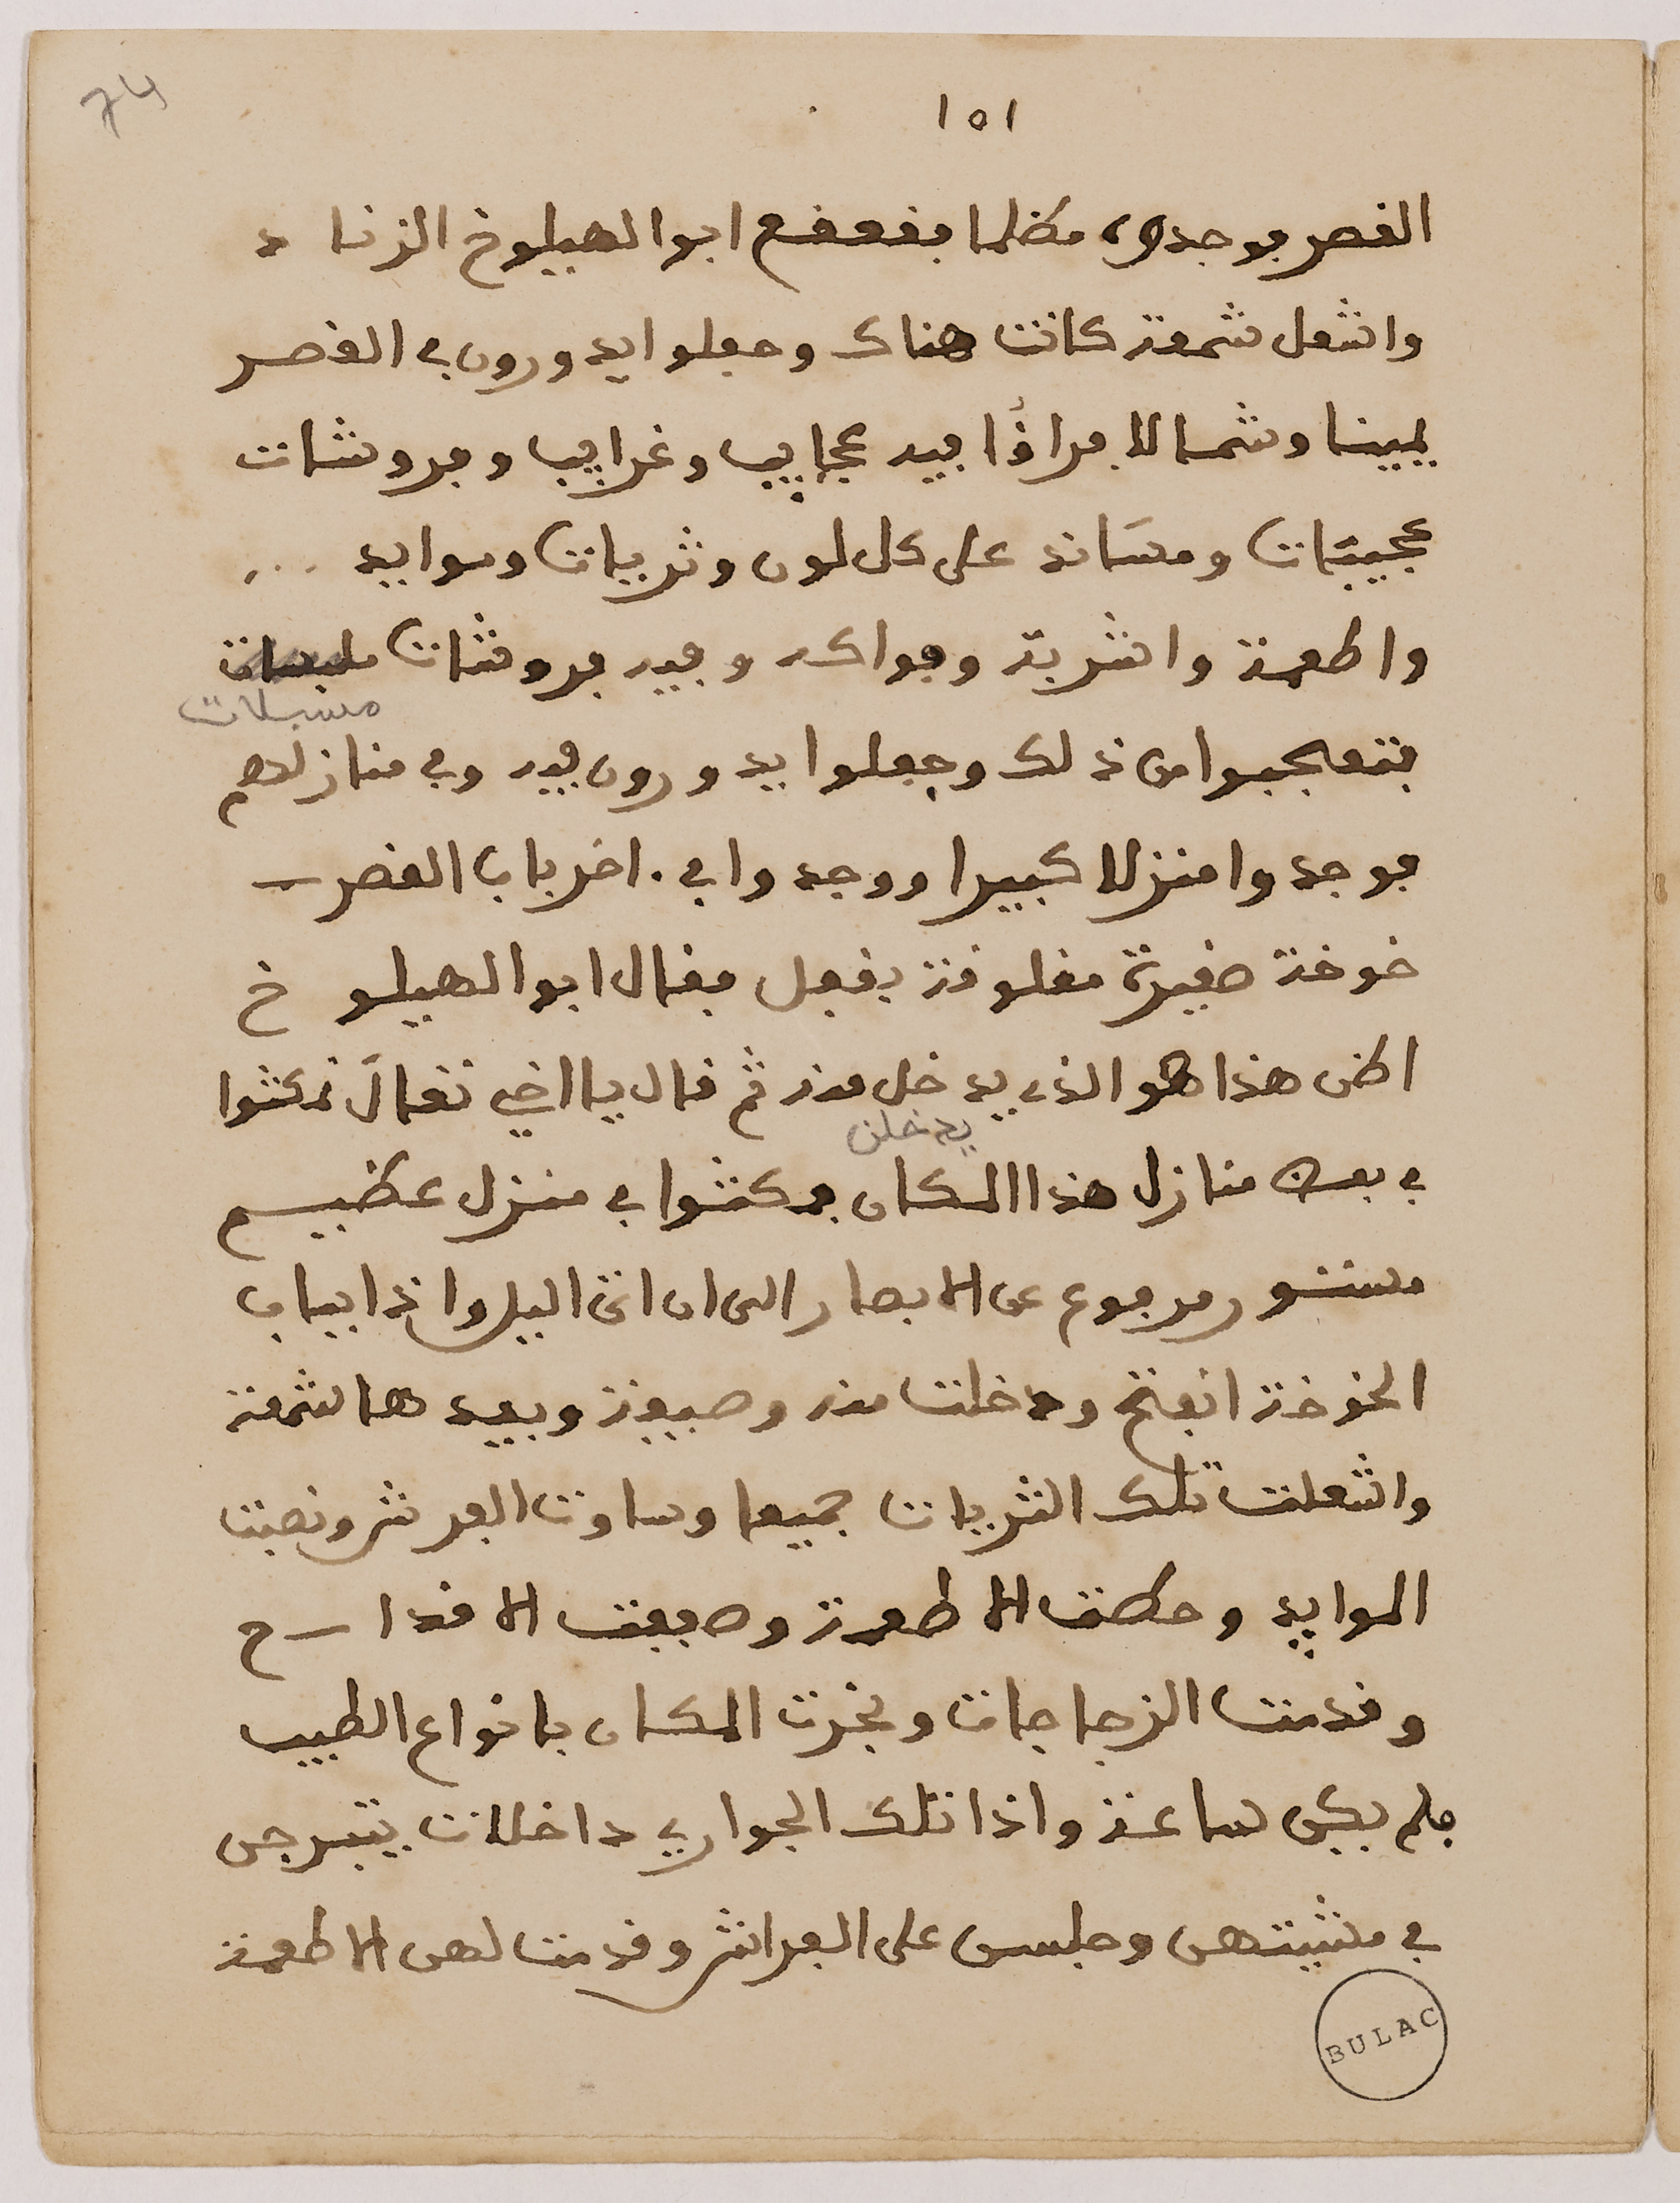 74
١٥١
القصر فوجدوه مظلما فقعقع ابوا لهيلوخ الزنا د
واشعل شمعة كانت هناك وجعلوا يدورون في القصر
يمينا وشمالا فراؤا فيه عجايب وغرايب وفروشات
عجيبات ومساند على كل لون وثريات وموايد ...
واطعمة واشربة وفواكه وفيه فروشات
مسبلات
فتعجبوا من ذلك وجعلوا يدورون فيه وفي منازلهم
فوجدوا منزلا كبيرا ووجدوا في اخر باب القصر
خوخة صغيرة مغلوقة بقفل فقال ابوا لهيلو خ
اظن هذا هو الذي يدخل منه ثم قال يا اخي تعال نمكثوا
يدخلن
في بعض منازل هذا المكان فمكثوا في منزل عظيم
مستور مرفوع عن الابصار الى ان اتى اليل واذا بباب
الخوخة انفتح ودخلت منه وصيفة وبيدها شمعة
واشعلت تلك الثريات جميعا وساوت الفرش ونصبت
الموايد وحطت الاطعمة وصففت الاقداح
وقدمت الزجاجات وبخرت المكان بانواع الطيب
فلم يكن ساعة واذا تلك الجواري داخلات يتبرجن
في مشيتهن وجلسن على الفراش وقدمت لهن الاطعمة
BULAC